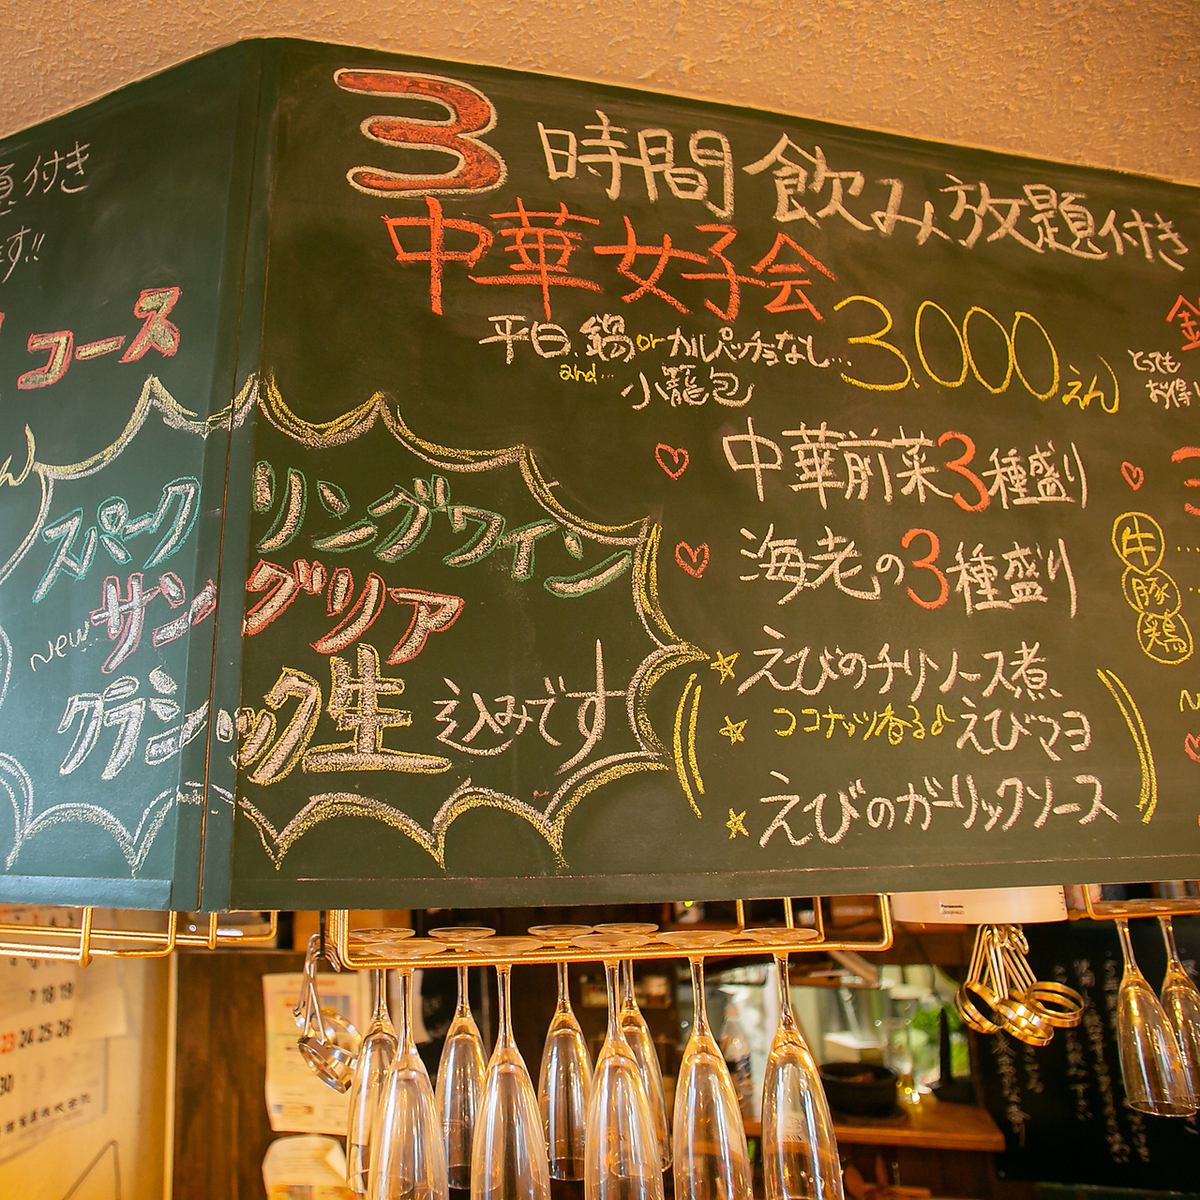 付き
す!!
コース
3時間飲み放題付き
中華女子会
平日、鍋orカルパッチョなし…
and…
小籠包
3,000えん
とっても
お得
スパークリングワイン
Newサングリア
クランバック生込みです
中華前菜3種盛り
海老の3種盛り
えびのチリソース煮
ココナッツ香る♪えびマヨ
えびのガーリックソース
牛…
豚…
鶏
Panasonic
7 18 19
23 24 25 26
30
株式会社